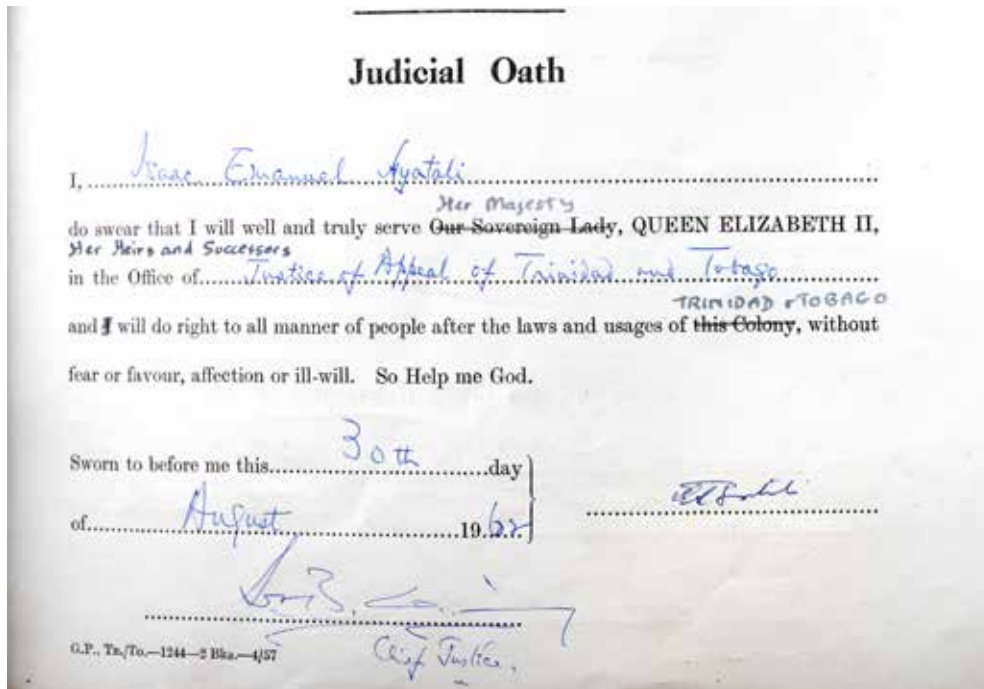 Judicial Oath
I, Isaac Emanuel Hyatali
Her Majesty
do swear that I will well and truly serve Our Sovereign Lady, QUEEN ELIZABETH II,
Her Heirs and Successors
in the Office of Justice of Appeal of Trinidad and Tobago
TRINIDAD & TOBAGO
and I will do right to all manner of people after the laws and usages of this Colony, without
fear or favour, affection or ill-will. So Help me God.
Sworn to before me this 30th day
of August 1962
Chief Justice,
G.P., Tr./To.—1244—2 Bks.—4/57